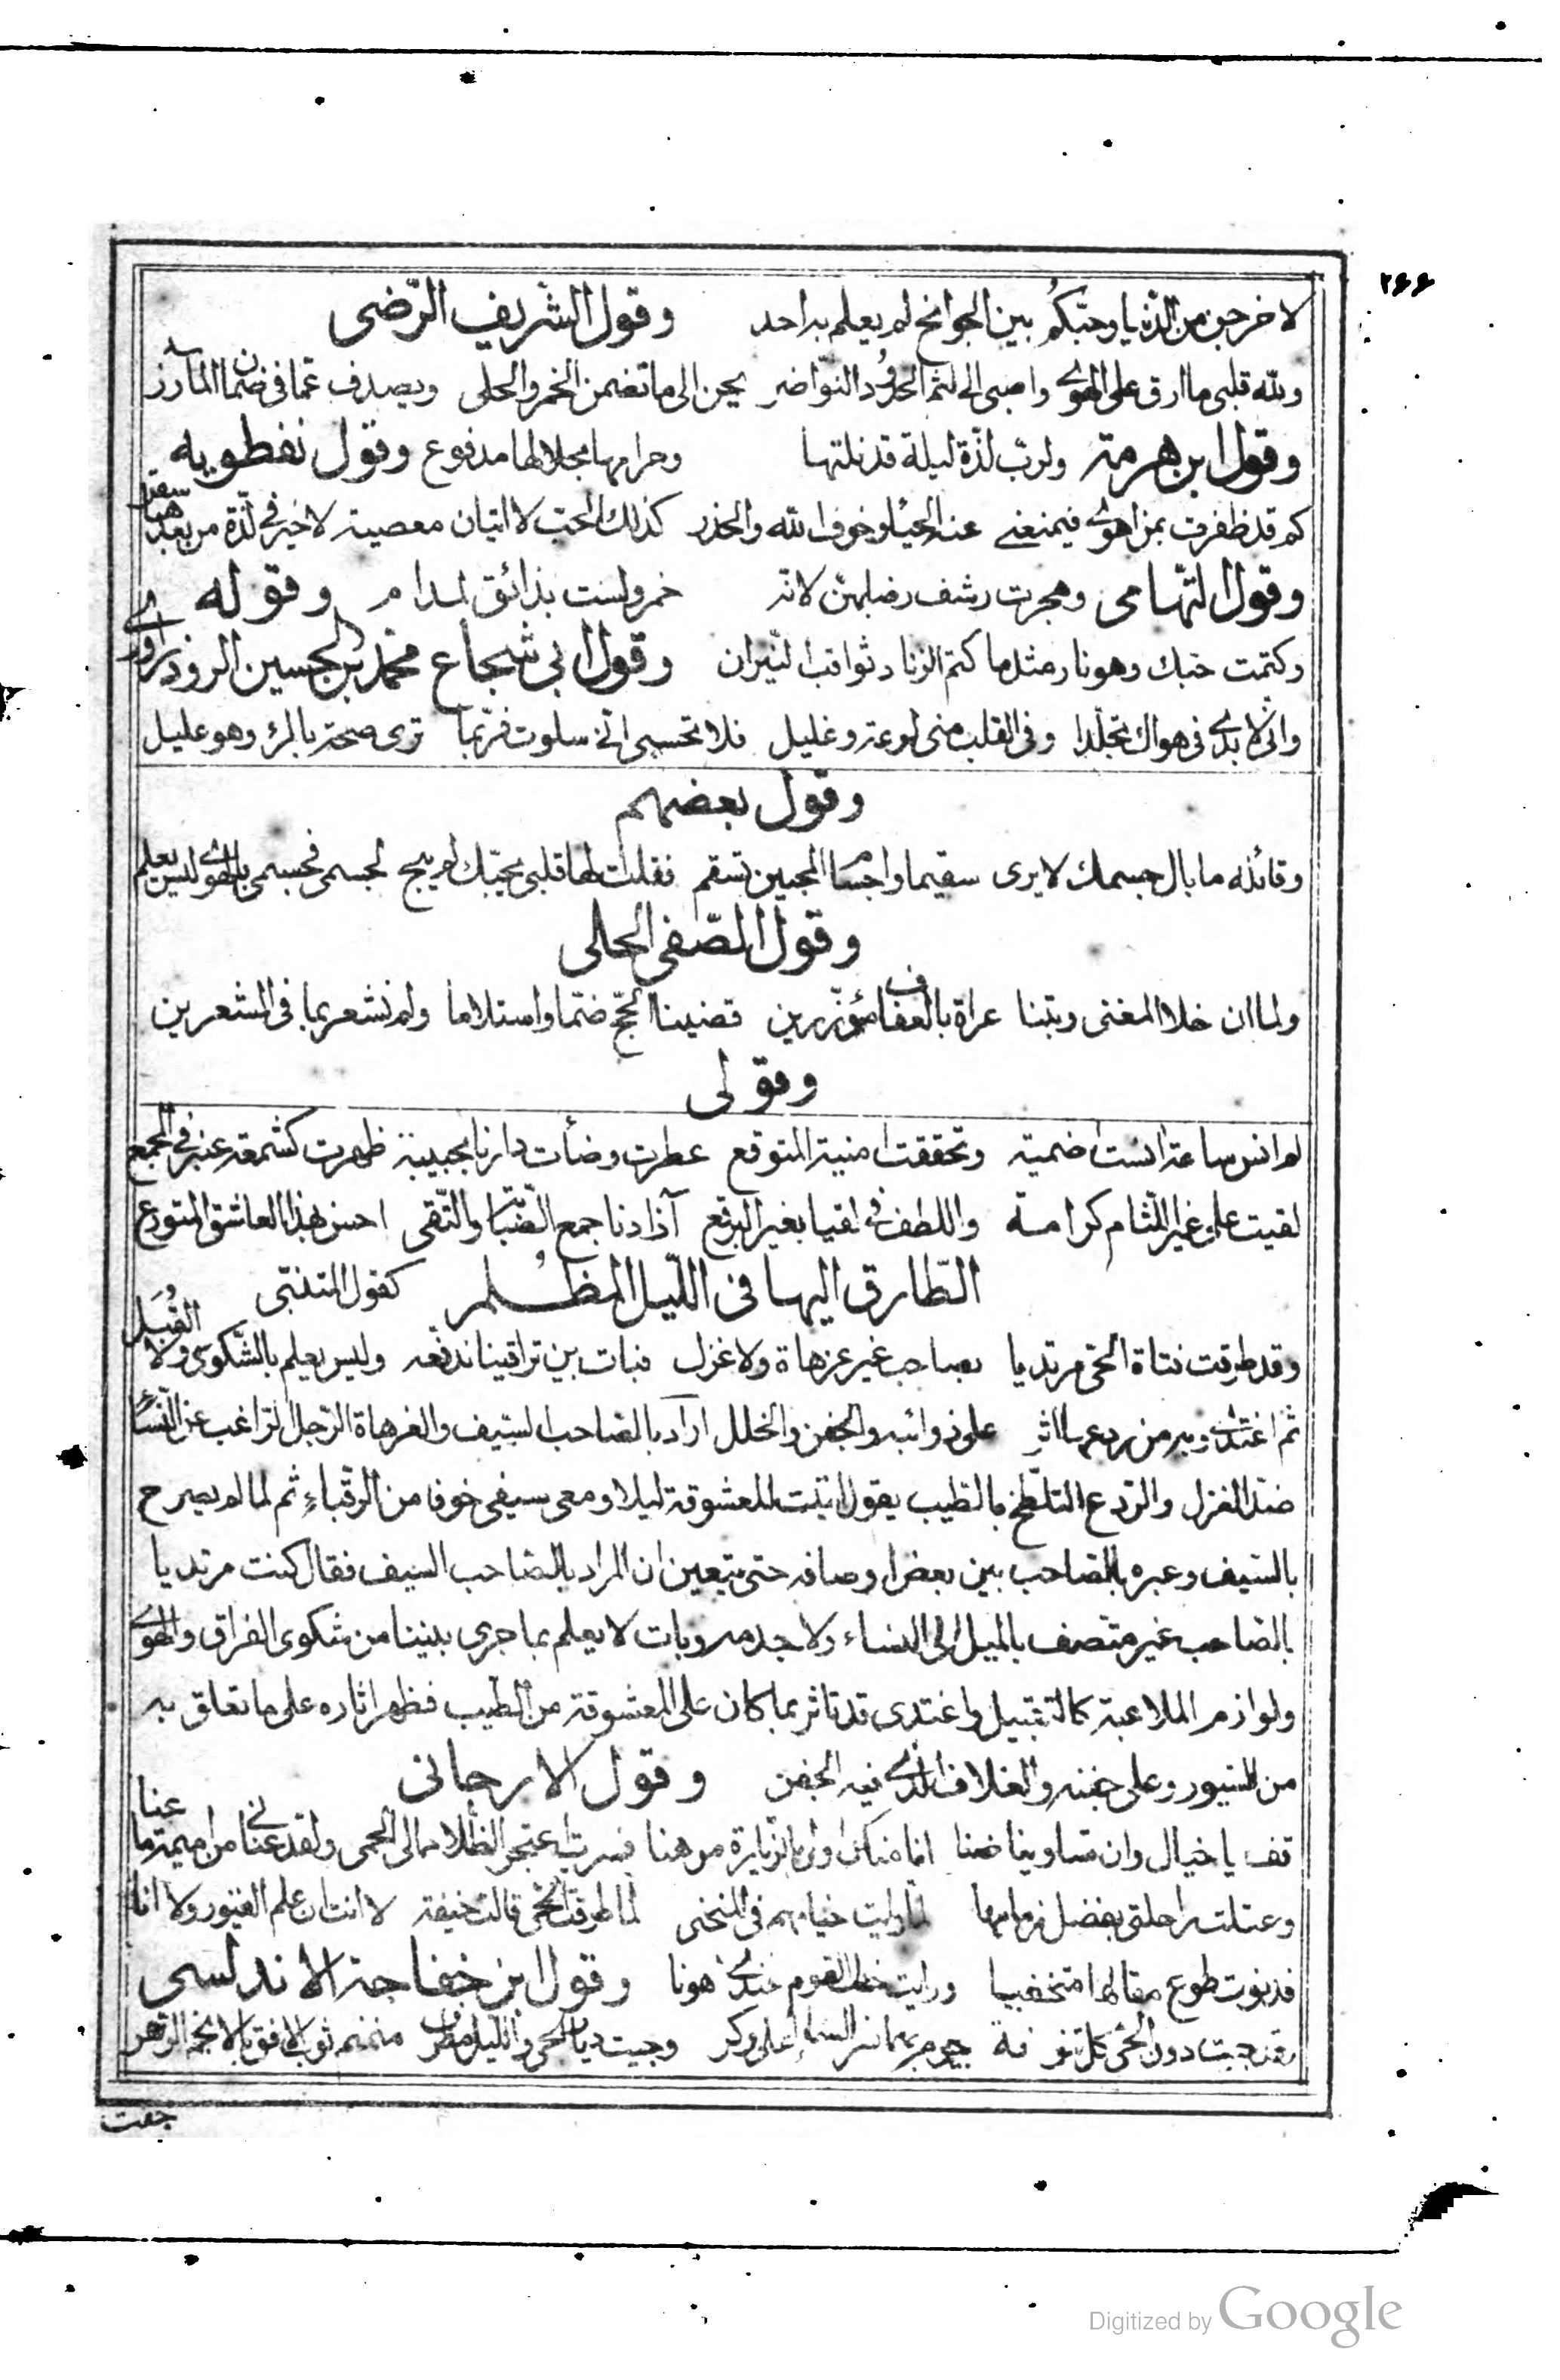 ٢٦٦
لاخرجن من الدنيا وحبكم بين الجوانح لم يعلم به احد وقول الشريف الرضى
ولله قلبى ما ارق على الهوى واصبى الى لثم الخدود النواضر يحن الى ما تضمن الخمر والحلى ويصدف عما فى ضمان المآزر
وقول ابن هرمة ولرب لذة ليلة قد نلتها وحرامها بحلالها مدفوع وقول نفطويه
كم قد ظفرت بمن اهوى فيمنعنى عنه الحياء وخوف الله والحذر كذلك الحب لا اتيان معصية لا خير فى لذة من بعدها سقر
وقول التهامى وهجرت رشف رضابهن لانه خمر ولست بذائق لمدام وقوله
وكتمت حبك وهو نار مثلما كتم الزناد ثواقب النيران وقول ابى شجاع محمد بن الحسين الروذراورى
وانى لابدى فى هواك تجلدا وفى القلب منى لوعة وغليل فلا تحسبى انى سلوت فربما ترى صحة بالمرء وهو عليل
وقول بعضهم
وقائلة ما بال جسمك لا يرى سقيما واجسام المحبين تسقم فقلت لها قلبى بحبك لم يبح لجسمى فجسمى بالهوى ليس يعلم
وقول الصفى الحلى
ولما ان خلا المغنى وبتنا عراة بالعفاف مؤزرين قضينا الحج ضما واستلاما ولم نشعر بما فى المشعرين
وقولى
لم انس ساعة انست اضمية وتحققت امنية المتوقع عطرت وضأت دارنا بجبينة ظهرت كشمعة عنبر فى المجمع
لقيت على غير اللثام كرامة واللطف فى لقيا بغير البرقع آذادنا جمع الصبابة والتقى احسن بهذا العاشق المتورع
الطارق اليها فى الليل المظلم كقول المتنبى
وقد طرقت فتاة الحى مرتديا بصاحب غير عزهاة ولا غزل فبات بين تراقينا ندفعه وليس يعلم بالشكوى ولا القبل
ثم اغتدى وبه من ردعها اثر على ذوائبه والجفن والخلل اراد بالصاحب السيف والغرهاة الرجل الراغب عن النساء
ضد الغزل والردع التلطخ بالطيب يقول اتيت المعشوقة ليلا ومعى سيفى خوفا من الرقباء ثم لما لم يصرح
بالسيف وعبره بالصاحب بين بعض اوصافه حتى يتعين ان المراد بالصاحب السيف فقال كنت مرتديا
بالصاحب غير متصف بالميل الى النساء ولا وبات لا يعلم بما جرى بيننا من شكوى الفراق والهوى
ولوازم الملاعبة كالتقبيل واغتدى قد تاثر بما كان على المعشوقة من الطيب فظهر اثاره على ما تعلق به
من السيور وعلى جفنه والغلاف الذى فيه الجفن وقول الارجانى
قف يا خيال وان تساوينا ضنا انا منك اولى بالزيارة موهنا فسريت اعتجر الظلام الى الحمى ولقد عنانى من اميمة ما عنا
وعتلت راحلتى بفضل زمامها لما رايت خيامهم فى المنحنى لما طرقت الحى قالت خيفة لا انت ان علم الغيور ولا انا
فدنوت طوع مقالها متخفيا ورايت خطب القوم عندى هونا وقول ابن خفاجة الاندلسى
لقد جبت دون الحى كل تنوفة يحوم بها نسر السماء على وكر وجبت ديار الحى والليل مطرق منمنم ثوب الافق بالانجم الزهر
جعت
Digitized by Google